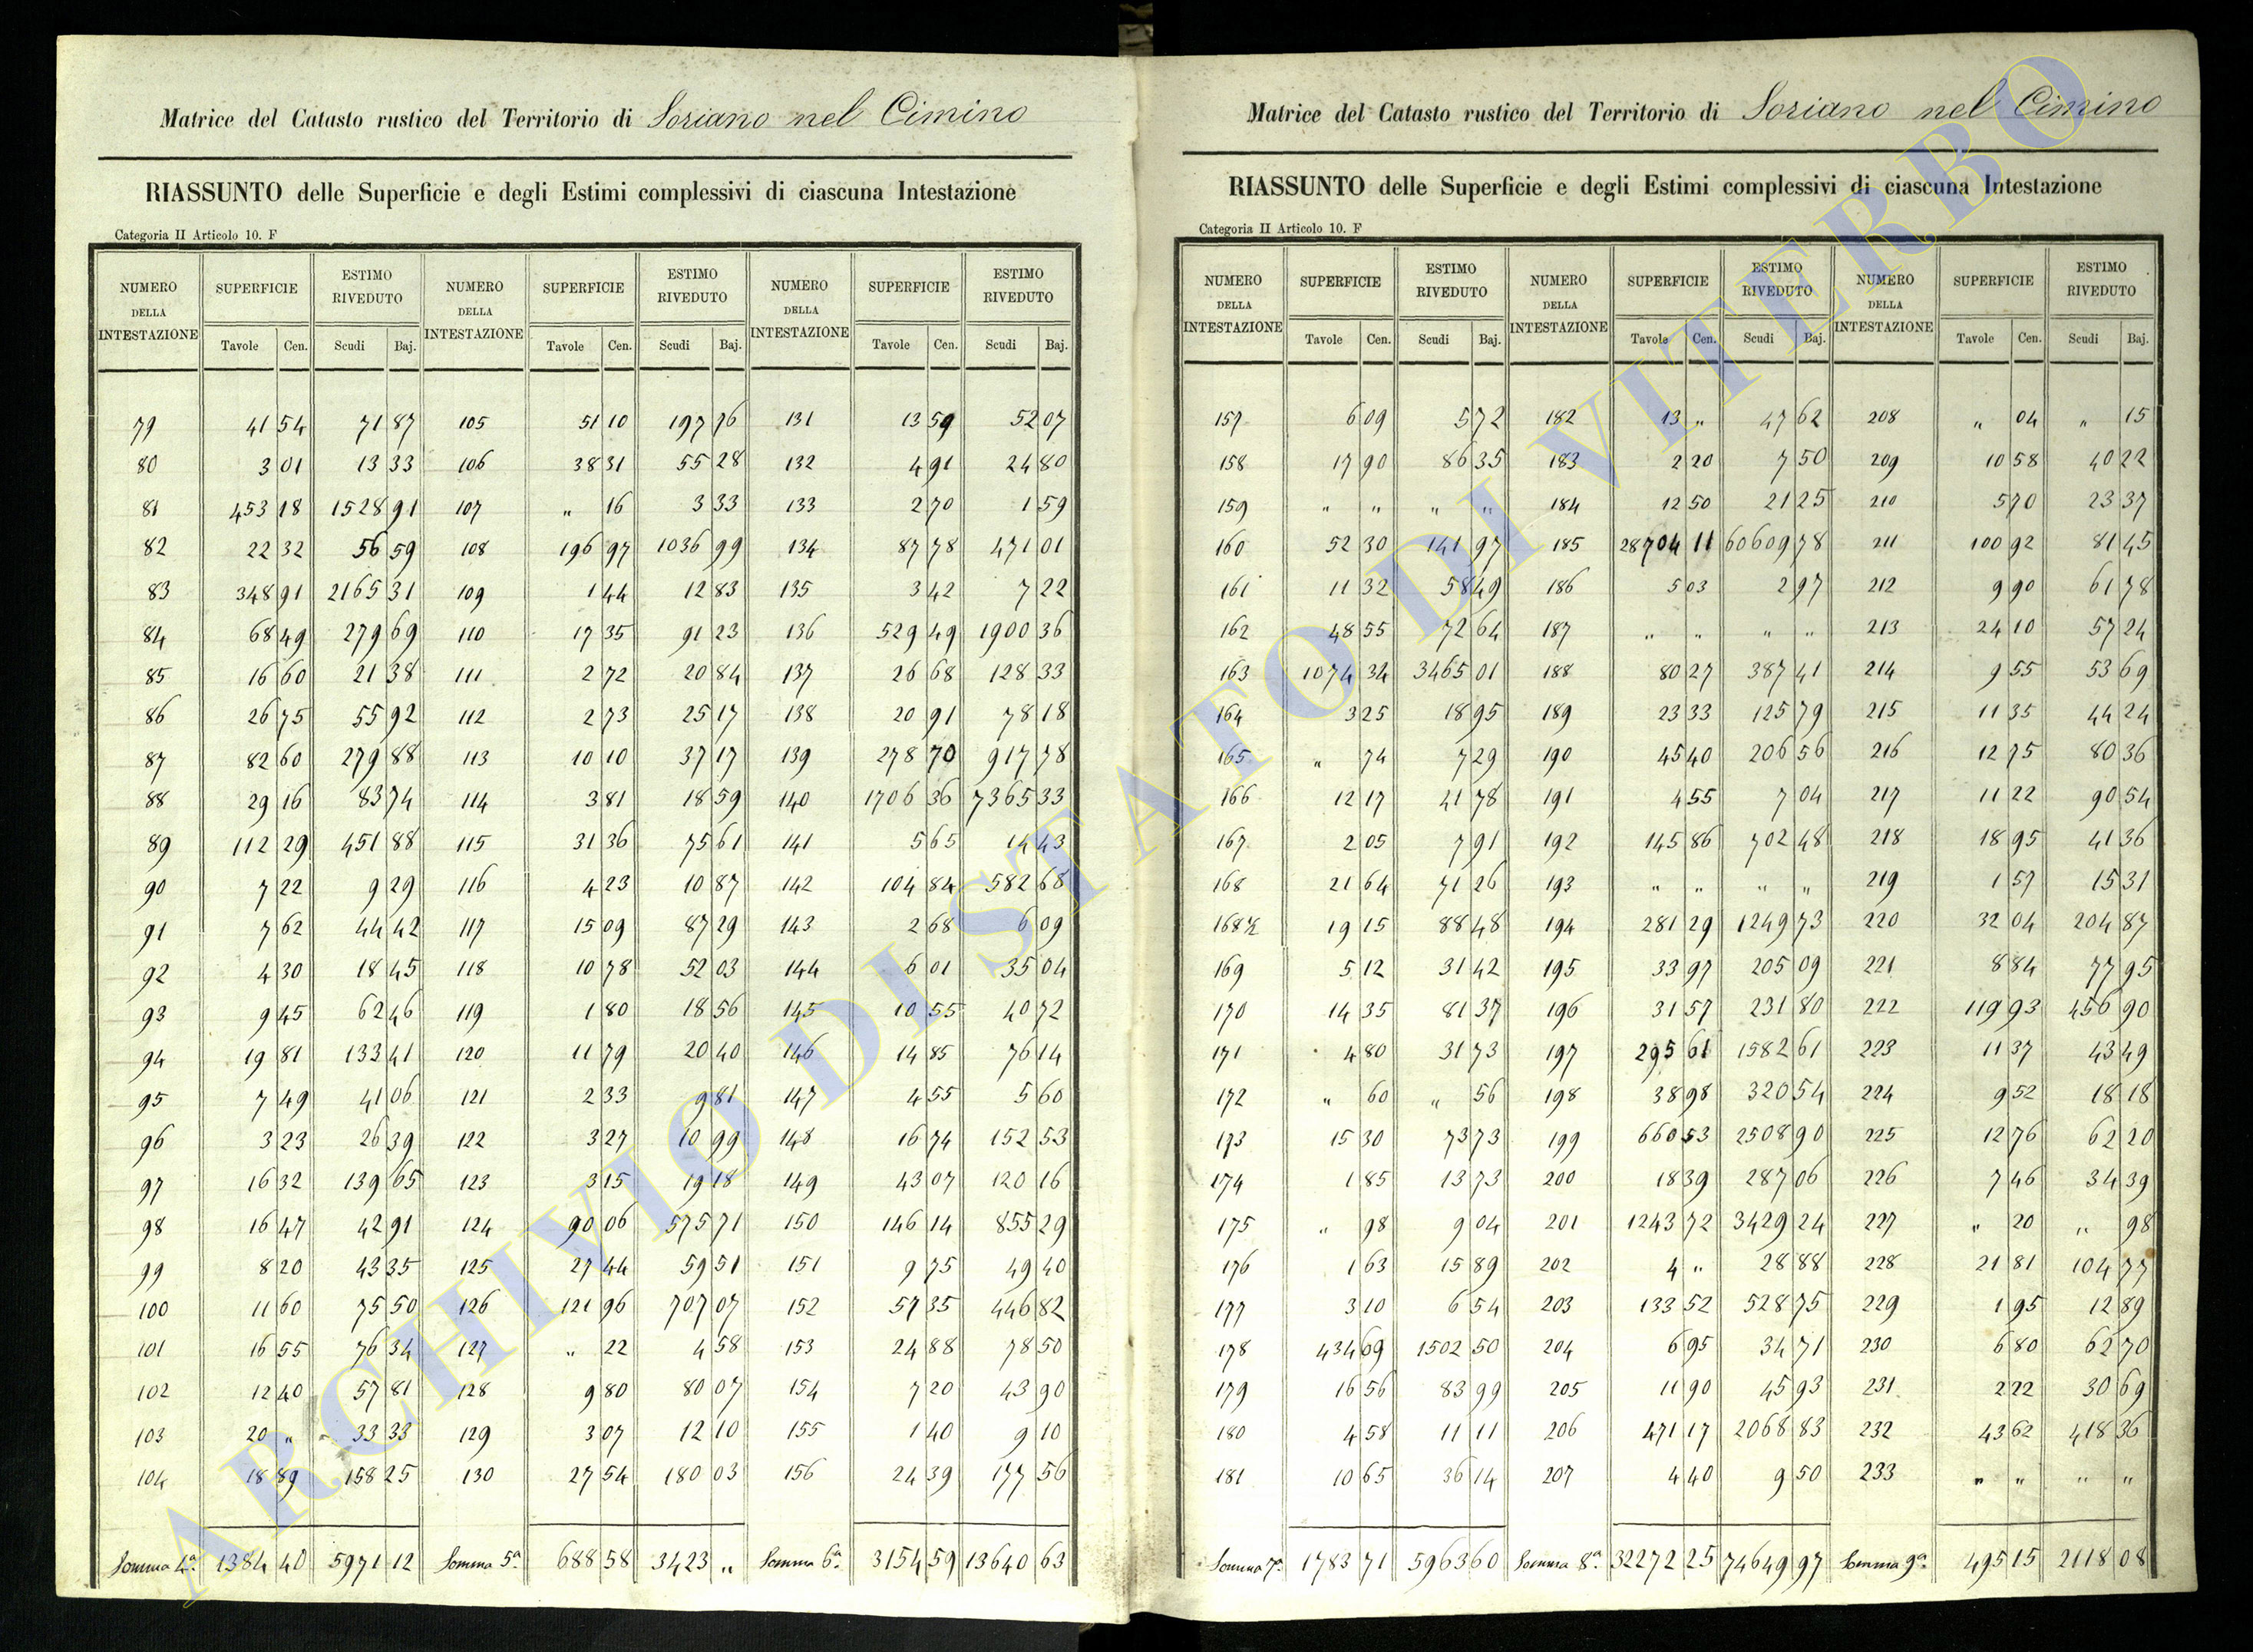 Matrice del Catasto rustico del Territorio di Soriano nel Cimino
RIASSUNTO delle Superficie e degli Estimi complessivi di ciascuna Intestazione
Categoria II Articolo 10. F
NUMERO DELLA INTESTAZIONE SUPERFICIE ESTIMO RIVEDUTO NUMERO DELLA INTESTAZIONE SUPERFICIE ESTIMO RIVEDUTO NUMERO DELLA INTESTAZIONE SUPERFICIE ESTIMO RIVEDUTO
Tavole Cen. Scudi Baj. Tavole Cen. Scudi Baj. Tavole Cen. Scudi Baj.
79 41 54 71 87 105 51 10 197 76 131 13 59 52 07
80 3 01 13 33 106 38 31 55 28 132 4 91 24 80
81 453 18 1528 91 107 " 16 3 33 133 2 70 1 59
82 22 32 56 59 108 196 97 1036 99 134 87 78 471 01
83 348 91 2165 31 109 1 44 12 83 135 3 42 7 22
84 68 49 279 69 110 17 35 91 23 136 529 49 1900 36
85 16 60 21 38 111 2 72 20 84 137 26 68 128 33
86 26 75 55 92 112 2 73 25 17 138 20 91 78 18
87 82 60 279 88 113 10 10 37 17 139 278 70 917 78
88 29 16 83 74 114 3 81 18 59 140 1706 36 7365 33
89 112 29 451 88 115 31 36 75 61 141 5 65 14 43
90 7 22 9 29 116 4 23 10 87 142 104 84 582 68
91 7 62 44 42 117 15 09 87 29 143 2 68 6 09
92 4 30 18 45 118 10 78 52 03 144 6 01 35 04
93 9 45 62 46 119 1 80 18 56 145 10 55 40 72
94 19 81 133 41 120 11 79 20 40 146 14 85 76 14
95 7 49 41 06 121 2 33 9 81 147 4 55 5 60
96 3 23 26 39 122 3 27 10 99 148 16 74 152 53
97 16 32 139 65 123 3 15 19 18 149 43 07 120 16
98 16 47 42 91 124 90 06 575 71 150 146 14 855 29
99 8 20 43 35 125 27 44 59 51 151 9 75 49 40
100 11 60 75 50 126 121 96 707 07 152 57 35 446 82
101 16 55 76 34 127 " 22 4 58 153 24 88 78 50
102 12 40 57 81 128 9 80 80 07 154 7 20 43 90
103 20 " 33 33 129 3 07 12 10 155 1 40 9 10
104 18 89 158 25 130 27 54 180 03 156 24 39 177 56
Somma 4ª 1384 40 5971 12 Somma 5ª 688 58 3423 " Somma 6ª 3154 59 13640 63
Matrice del Catasto rustico del Territorio di Soriano nel Cimino
RIASSUNTO delle Superficie e degli Estimi complessivi di ciascuna Intestazione
Categoria II Articolo 10. F
NUMERO DELLA INTESTAZIONE SUPERFICIE ESTIMO RIVEDUTO NUMERO DELLA INTESTAZIONE SUPERFICIE ESTIMO RIVEDUTO NUMERO DELLA INTESTAZIONE SUPERFICIE ESTIMO RIVEDUTO
Tavole Cen. Scudi Baj. Tavole Cen. Scudi Baj. Tavole Cen. Scudi Baj.
157 6 09 5 72 182 13 " 47 62 208 " 04 " 15
158 17 90 86 35 183 2 20 7 50 209 10 58 40 22
159 " " " " 184 12 50 21 25 210 5 70 23 37
160 52 30 141 97 185 28704 11 60609 78 211 100 92 81 45
161 11 32 58 49 186 5 03 2 97 212 9 90 61 78
162 48 55 72 64 187 " " " " 213 24 10 57 24
163 1074 34 3465 01 188 80 27 387 41 214 9 55 53 69
164 3 25 18 95 189 23 33 125 79 215 11 35 44 24
165 " 74 7 29 190 45 40 206 56 216 12 75 80 36
166 12 17 41 78 191 4 55 7 04 217 11 22 90 54
167 2 05 7 91 192 145 86 702 48 218 18 95 41 36
168 21 64 71 26 193 " " " " 219 1 57 15 31
168½ 19 15 88 48 194 281 29 1249 73 220 32 04 204 87
169 5 12 31 42 195 33 97 205 09 221 8 84 77 95
170 14 35 81 37 196 31 57 231 80 222 119 93 456 90
171 4 80 31 73 197 295 61 1582 61 223 11 37 43 49
172 " 60 " 56 198 38 98 320 54 224 9 52 18 18
173 15 30 73 73 199 660 53 2508 90 225 12 76 62 20
174 1 85 13 73 200 18 39 287 06 226 7 46 34 39
175 " 98 9 04 201 1243 72 3429 24 227 " 20 " 98
176 1 63 15 89 202 4 " 28 88 228 21 81 104 77
177 3 10 6 54 203 133 52 528 75 229 1 95 12 89
178 434 69 1502 50 204 6 95 34 71 230 6 80 62 70
179 16 56 83 99 205 11 90 45 93 231 2 22 30 69
180 4 58 11 11 206 471 17 2068 83 232 43 62 418 36
181 10 65 36 14 207 4 40 9 50 233 " " " "
Somma 7ª 1783 71 5963 60 Somma 8ª 32272 25 74649 97 Somma 9ª 495 15 2118 08
ARCHIVIO DI STATO DI VITERBO